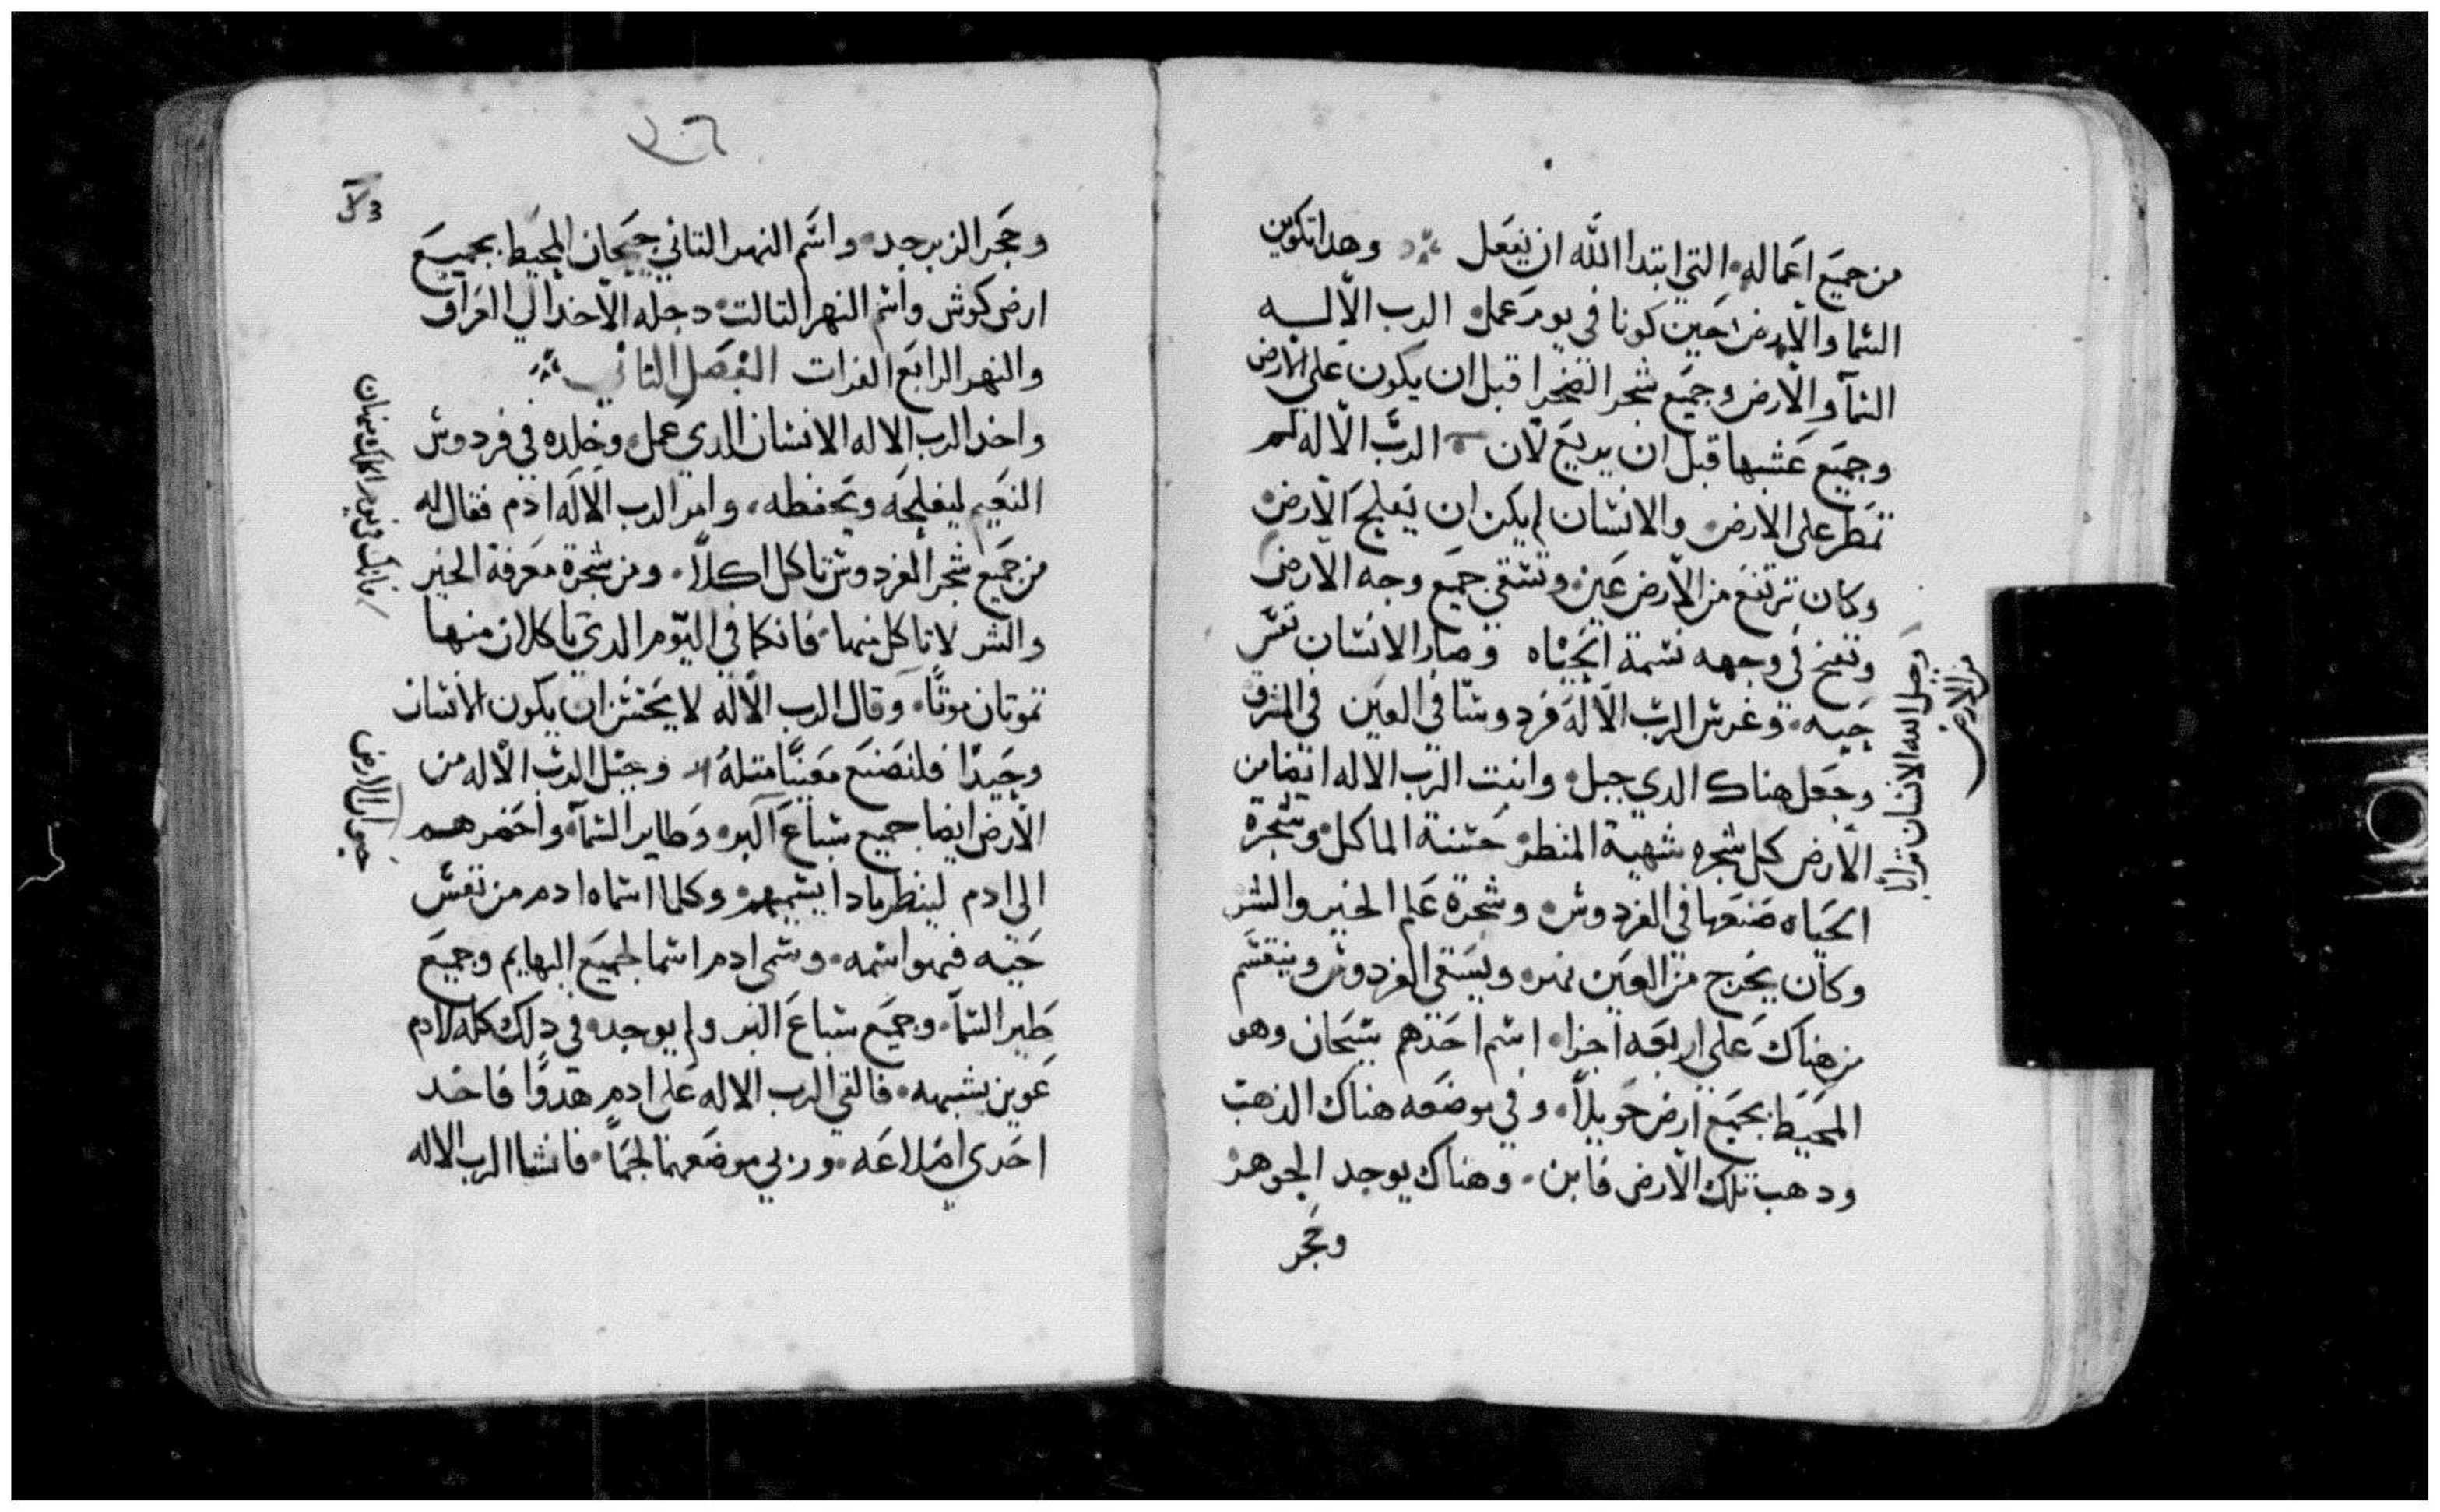 من جميع اعماله التي ابتدا الله ان يفعل وهدا تكوين
السما والارض حين كونا في يوم عمل الرب الاله
السمآ والارض وجميع شجر الصحرا قبل ان يكون علي الارض
وجميع عشبها قبل ان يريع لان الرب الاله لم
تمطر علي الارض والانسان لم يكن ان يفلح الارض
وكان ترتفع من الارض عين وتسقي جميع وجه الارض
وجبل الله الانسان ترابًا
من الارض
ونفخ في وجهه نسمة الحياه وصار الانسان نفس
حيه وغرس الرب الاله فردوسًا في العين في المشرق
وجعل هناك الدي جبل وانبت الرب الاله ايضا من
الارض كل شجره شهية المنظر حسنة الماكل وشجرة
الحياه صنعها في الفردوس وشجرة علم الخير والشر
وكان يخرج من العين نهر ويسقي الفردوس وينقسم
من هناك علي اربعه اجزا اسم احدهم سيحان وهو
المحيط بجميع ارض حويلاً وفي موضعه هناك الذهب
ودهب تلك الارض فابن وهناك يوجد الجوهر
وحجر
وحجر الزبرجد واسم النهر التاني جيحان المحيط بجميع
ارض كوش واسم النهر التالت دجله الاخد الي العراق
والنهر الرابع الفرات الفصل التاني
واخد الرب الاله الانسان الدي عمل وخلده في فردوس
النعيم ليفلحه ويحفظه وامر الرب الاله ادم فقال له
من جميع شجر الفردوس تاكل اكلاً ومن شجرة معرفة الخير
والشر لا تاكل منها فانكما في اليوم الدي تاكلان منها
تموتان موتًا وقال الرب الاله لا يحسن ان يكون الانسان
وحيدًا فلنصنع معينًا متله وجبل الرب الاله من
الارض ايضا جميع سباع البر وطاير السمآ واحضرهم
الي ادم لينظر مادا يسميهم وكلما اسماه ادم من نفس
حيه فهو اسمه وسمي ادم اسما لجميع البهايم وجميع
طير السمآ وجميع سباع البر ولم يوجد في دلك كله لادم
عوين يشبهه فالقي الرب الاله علي ادم هدوًا فاخد
احدي اضلاعه وربي موضعها لحمًا فانشا الرب الاله